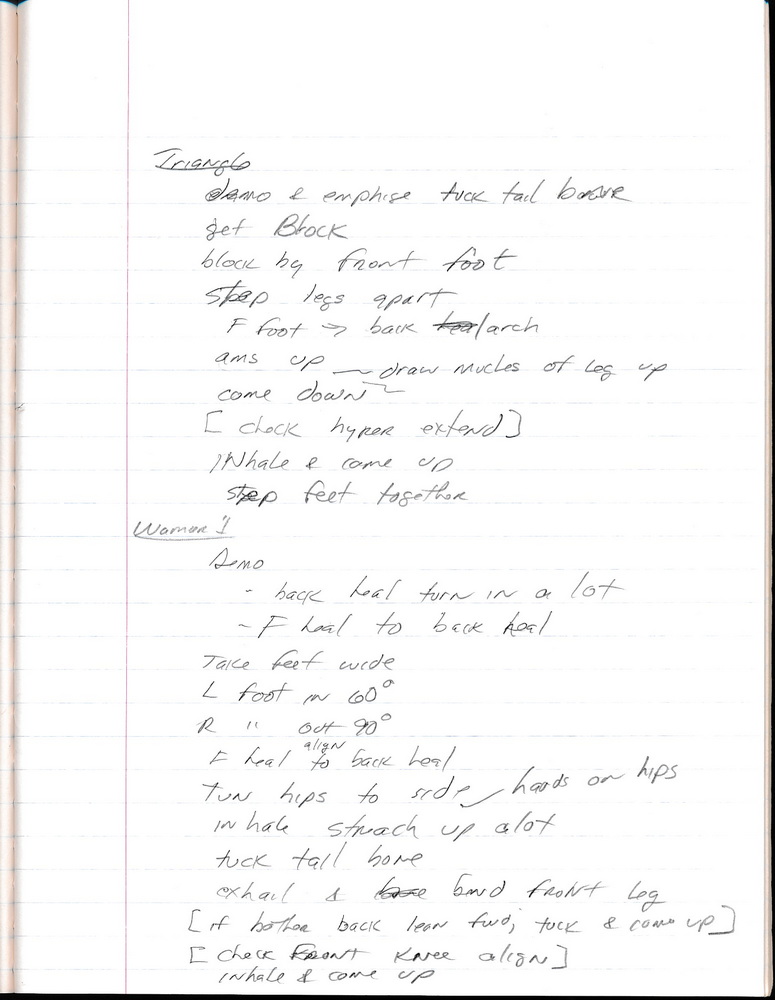 Triangle
demo & emphise tuck tail bone
get Block
block by front foot
step legs apart
F foot → back heal/arch
ams up — draw mucles of leg up
come down
[check hyper extend]
INhale & come up
step feet together
Warrior 1
Demo
- back heal turn in a lot
- F heal to back heal
Take feet wide
L foot in 60°
R " out 90°
F heal align to back heal
Turn hips to side hands on hips
inhale streach up alot
tuck tail bone
exhail & bend front leg
[if bother back lean fwd; tuck & come up]
[check Front Knee align]
inhale & come up